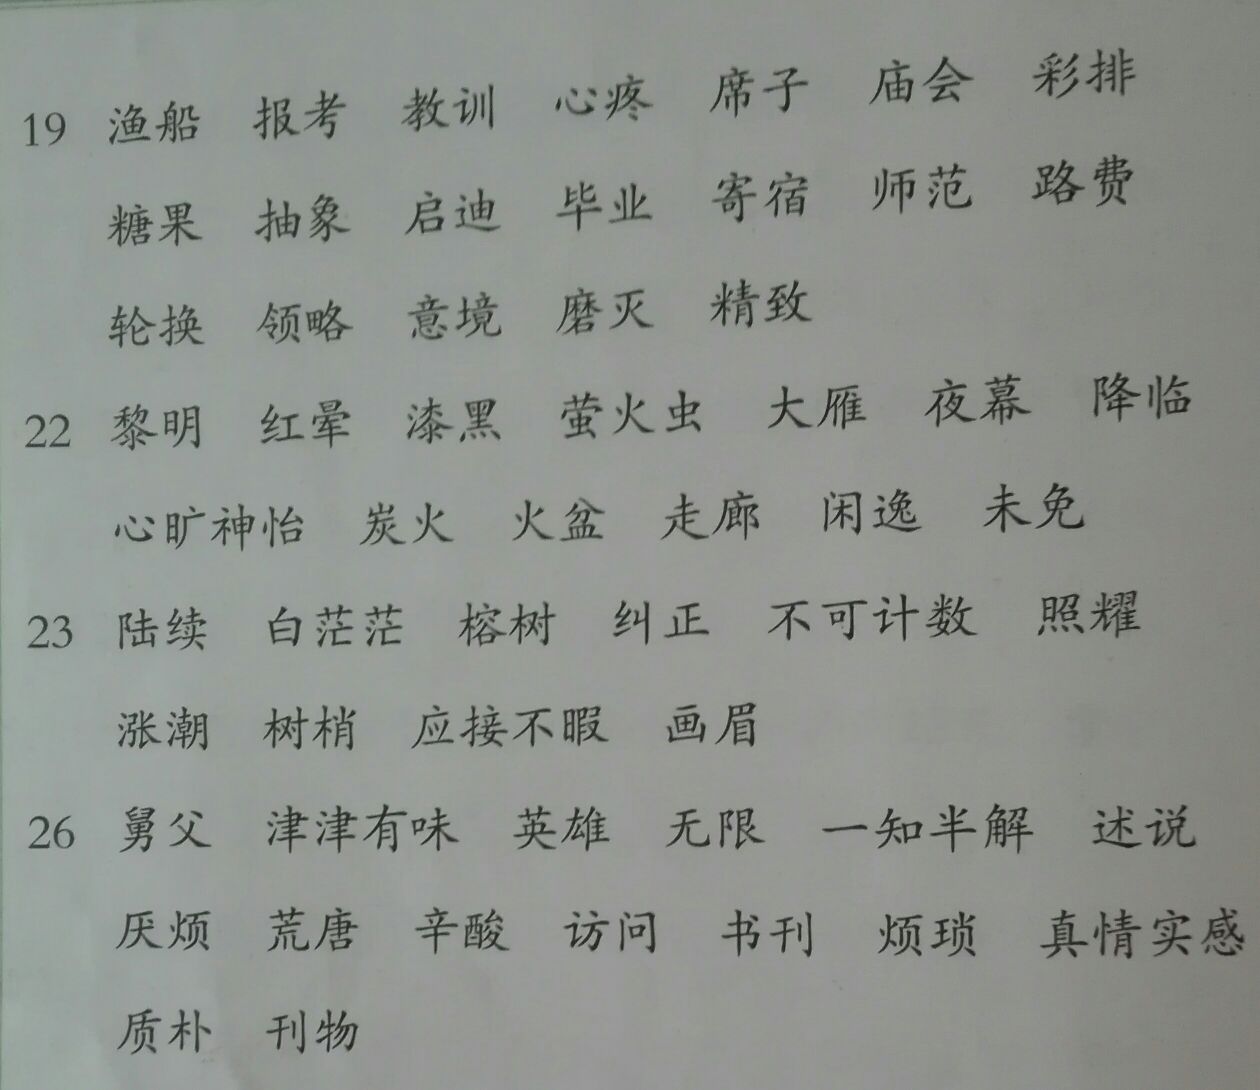 19 渔船 报考 教训 心疼 席子 庙会 彩排
糖果 抽象 启迪 毕业 寄宿 师范 路费
轮换 领略 意境 磨灭 精致
22 黎明 红晕 漆黑 萤火虫 大雁 夜幕 降临
心旷神怡 炭火 火盆 走廊 闲逸 未免
23 陆续 白茫茫 榕树 纠正 不可计数 照耀
涨潮 树梢 应接不暇 画眉
26 舅父 津津有味 英雄 无限 一知半解 述说
厌烦 荒唐 辛酸 访问 书刊 烦琐 真情实感
质朴 刊物